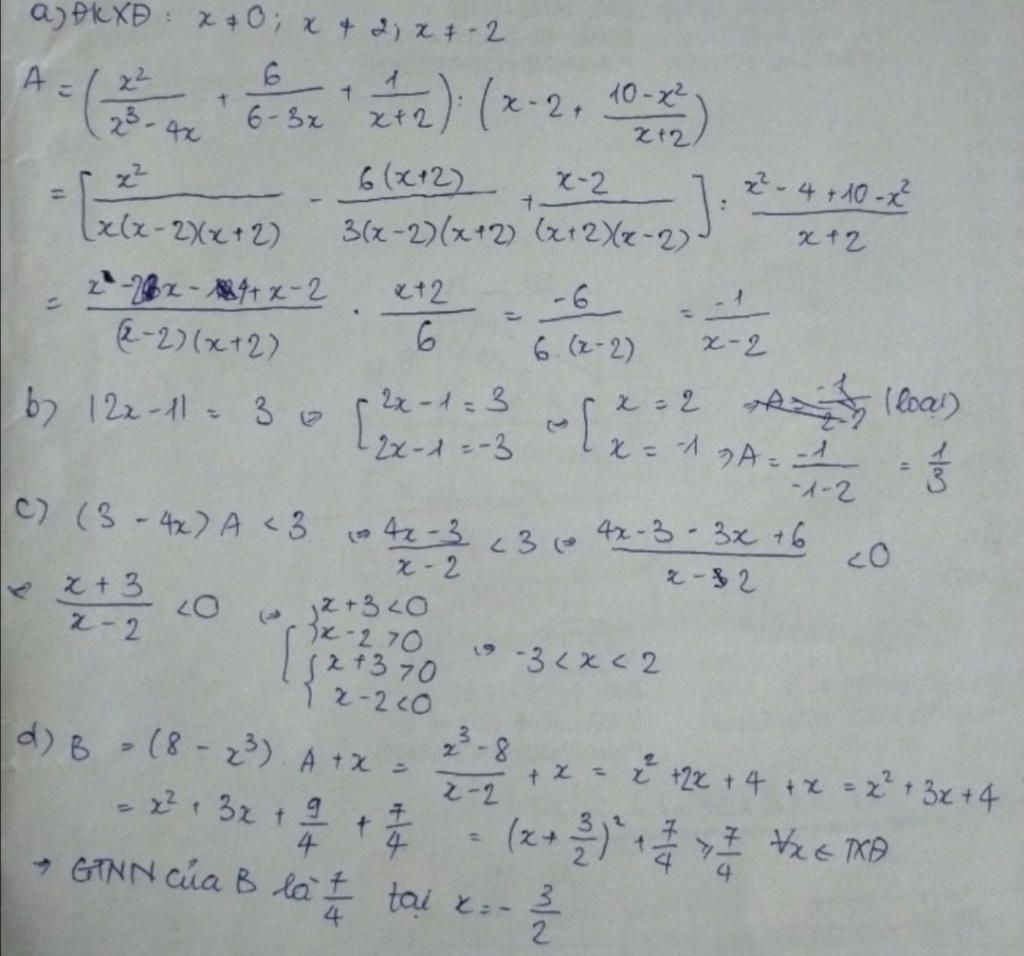 a) ĐKXĐ : x ≠ 0 ; x ≠ 2 ; x ≠ -2
A = ( x²/(x³ - 4x) + 6/(6 - 3x) + 1/(x+2) ) : ( x - 2 + (10 - x²)/(x+2) )
= [ x²/(x(x-2)(x+2)) - 6(x+2)/(3(x-2)(x+2)) + (x-2)/((x+2)(x-2)) ] : (x² - 4 + 10 - x²)/(x+2)
= (x - 2x - 4 + x - 2)/((x-2)(x+2)) . (x+2)/6 = -6/(6.(x-2)) = -1/(x-2)
b) |2x - 1| = 3 ⇔ [ 2x - 1 = 3 ; 2x - 1 = -3 ⇔ [ x = 2 (loại) ; x = -1 ⇒ A = -1/(-1-2) = 1/3
c) (3 - 4x) A < 3 ⇔ (4x - 3)/(x - 2) < 3 ⇔ (4x - 3 - 3x + 6)/(x - 2) < 0
⇔ (x + 3)/(x - 2) < 0 ⇔ [ { x + 3 < 0 ; x - 2 > 0 ; { x + 3 > 0 ; x - 2 < 0 ⇔ -3 < x < 2
d) B = (8 - x³) . A + x = (x³ - 8)/(x - 2) + x = x² + 2x + 4 + x = x² + 3x + 4
= x² + 3x + 9/4 + 7/4 = (x + 3/2)² + 7/4 ≥ 7/4 ∀x ∈ TXĐ
→ GTNN của B là 7/4 tại x = - 3/2